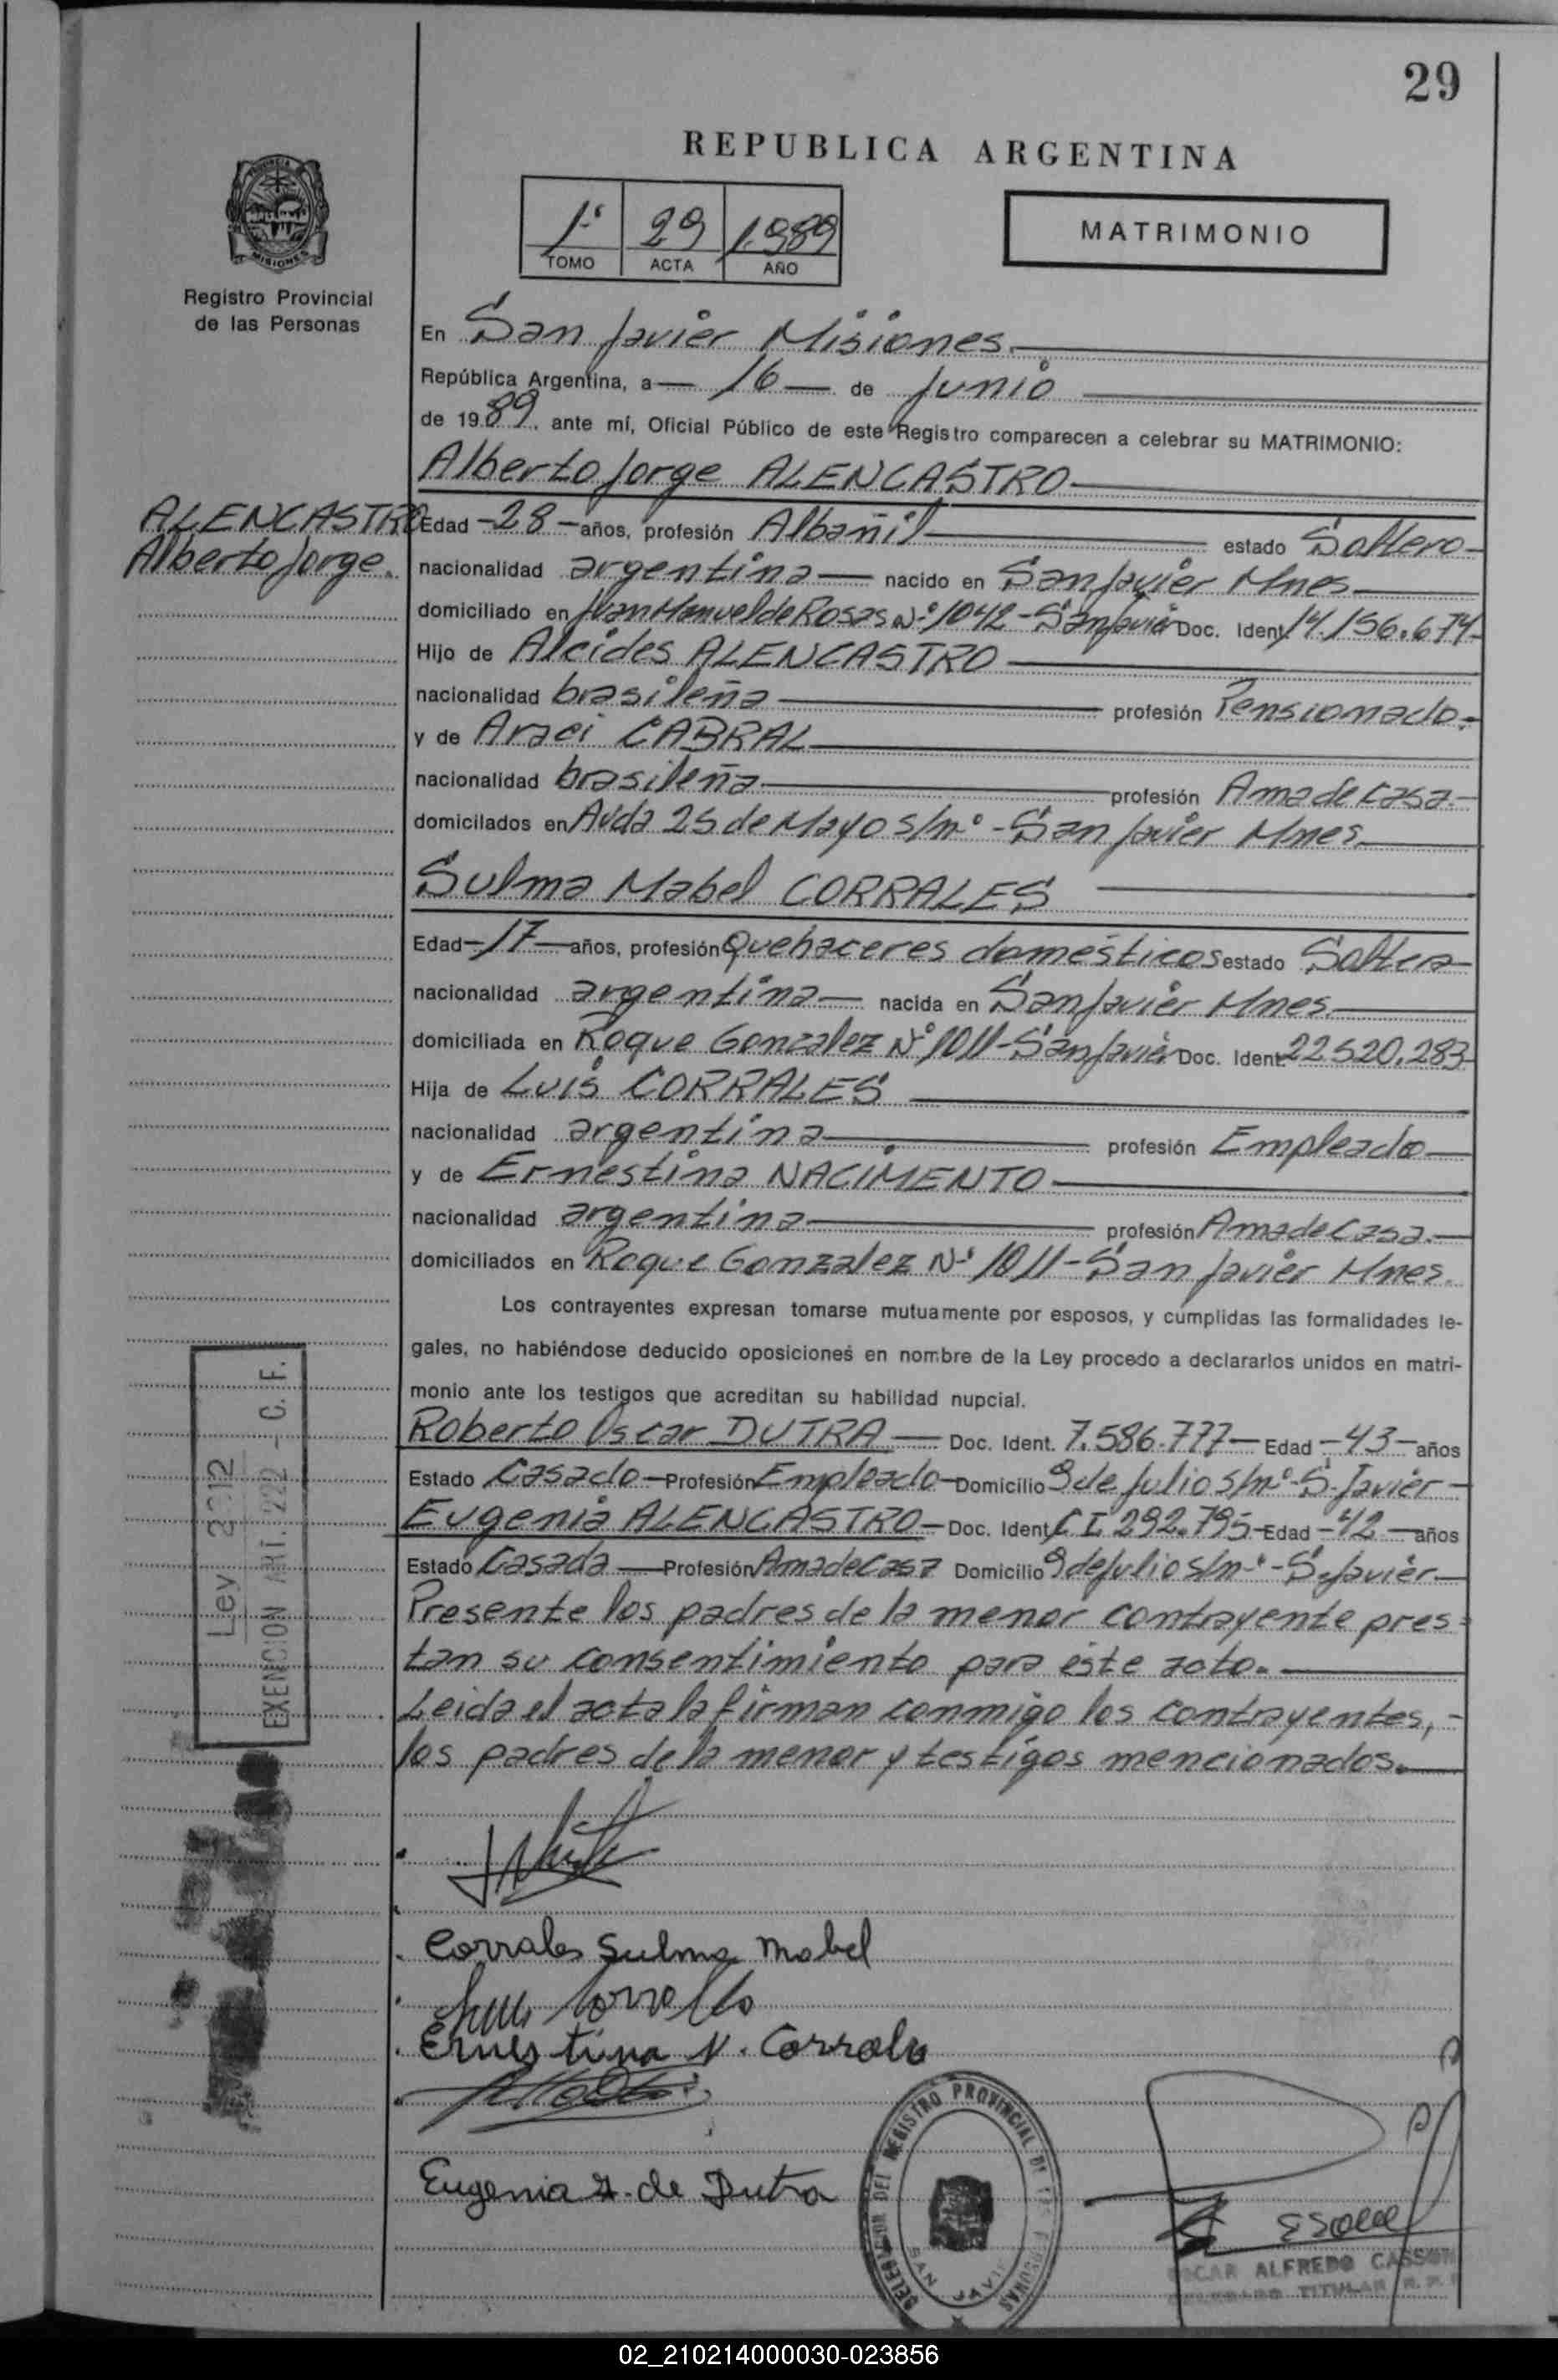 29
REPUBLICA ARGENTINA
1º 29 1.989
TOMO ACTA AÑO
MATRIMONIO
PROVINCIA
MISIONES
Registro Provincial
de las Personas
En San Javier Misiones.
República Argentina, a 16 de Junio
de 1989, ante mí, Oficial Público de este Registro comparecen a celebrar su MATRIMONIO:
Alberto Jorge ALENCASTRO
ALENCASTRO
Alberto Jorge.
Edad -28- años, profesión Albañil estado Soltero-
nacionalidad argentina nacido en San Javier Mnes.
domiciliado en Juan Manuel de Rosas Nº 1042-San Javier Doc. Ident. 14.156.674-
Hijo de Alcides ALENCASTRO
nacionalidad brasileña profesión Pensionado.-
y de Araci CABRAL
nacionalidad brasileña profesión Ama de casa.-
domicilados en Avda 25 de Mayo s/nº-San Javier Mnes.
Sulma Mabel CORRALES
Edad -17- años, profesión Quehaceres domésticos estado Soltera
nacionalidad argentina nacida en San Javier Mnes.
domiciliada en Roque Gonzalez Nº 1011-San Javier Doc. Ident. 22.520.283-
Hija de Luis CORRALES
nacionalidad argentina profesión Empleado
y de Ernestina NACIMENTO
nacionalidad argentina profesión Ama de casa.
domiciliados en Roque Gonzalez Nº 1011-San Javier Mnes.
Los contrayentes expresan tomarse mutuamente por esposos, y cumplidas las formalidades le-
gales, no habiéndose deducido oposiciones en nombre de la Ley procedo a declararlos unidos en matri-
monio ante los testigos que acreditan su habilidad nupcial.
Roberto Oscar DUTRA Doc. Ident. 7.586.777 Edad -43- años
Estado Casado Profesión Empleado Domicilio 9 de Julio s/nº-S. Javier-
Eugenia ALENCASTRO Doc. Ident. C I 292.795 Edad -42- años
Estado Casada Profesión Ama de casa Domicilio 9 de Julio s/nº-S. Javier
Presente los padres de la menor contrayente pres-
tan su consentimiento para éste acto.
Leida el acta la firman conmigo los contrayentes,-
los padres de la menor y testigos mencionados.
Ley 2312
EXENCION ART. 222 - C. F.
Corrales Sulma Mabel
Luis Corrales
Ernestina N. Corrales
Eugenia A. de Dutra
DELEGACION DEL REGISTRO PROVINCIAL DE LAS PERSONAS
SAN JAVIER
OSCAR ALFREDO
TITULAR
02_210214000030-023856